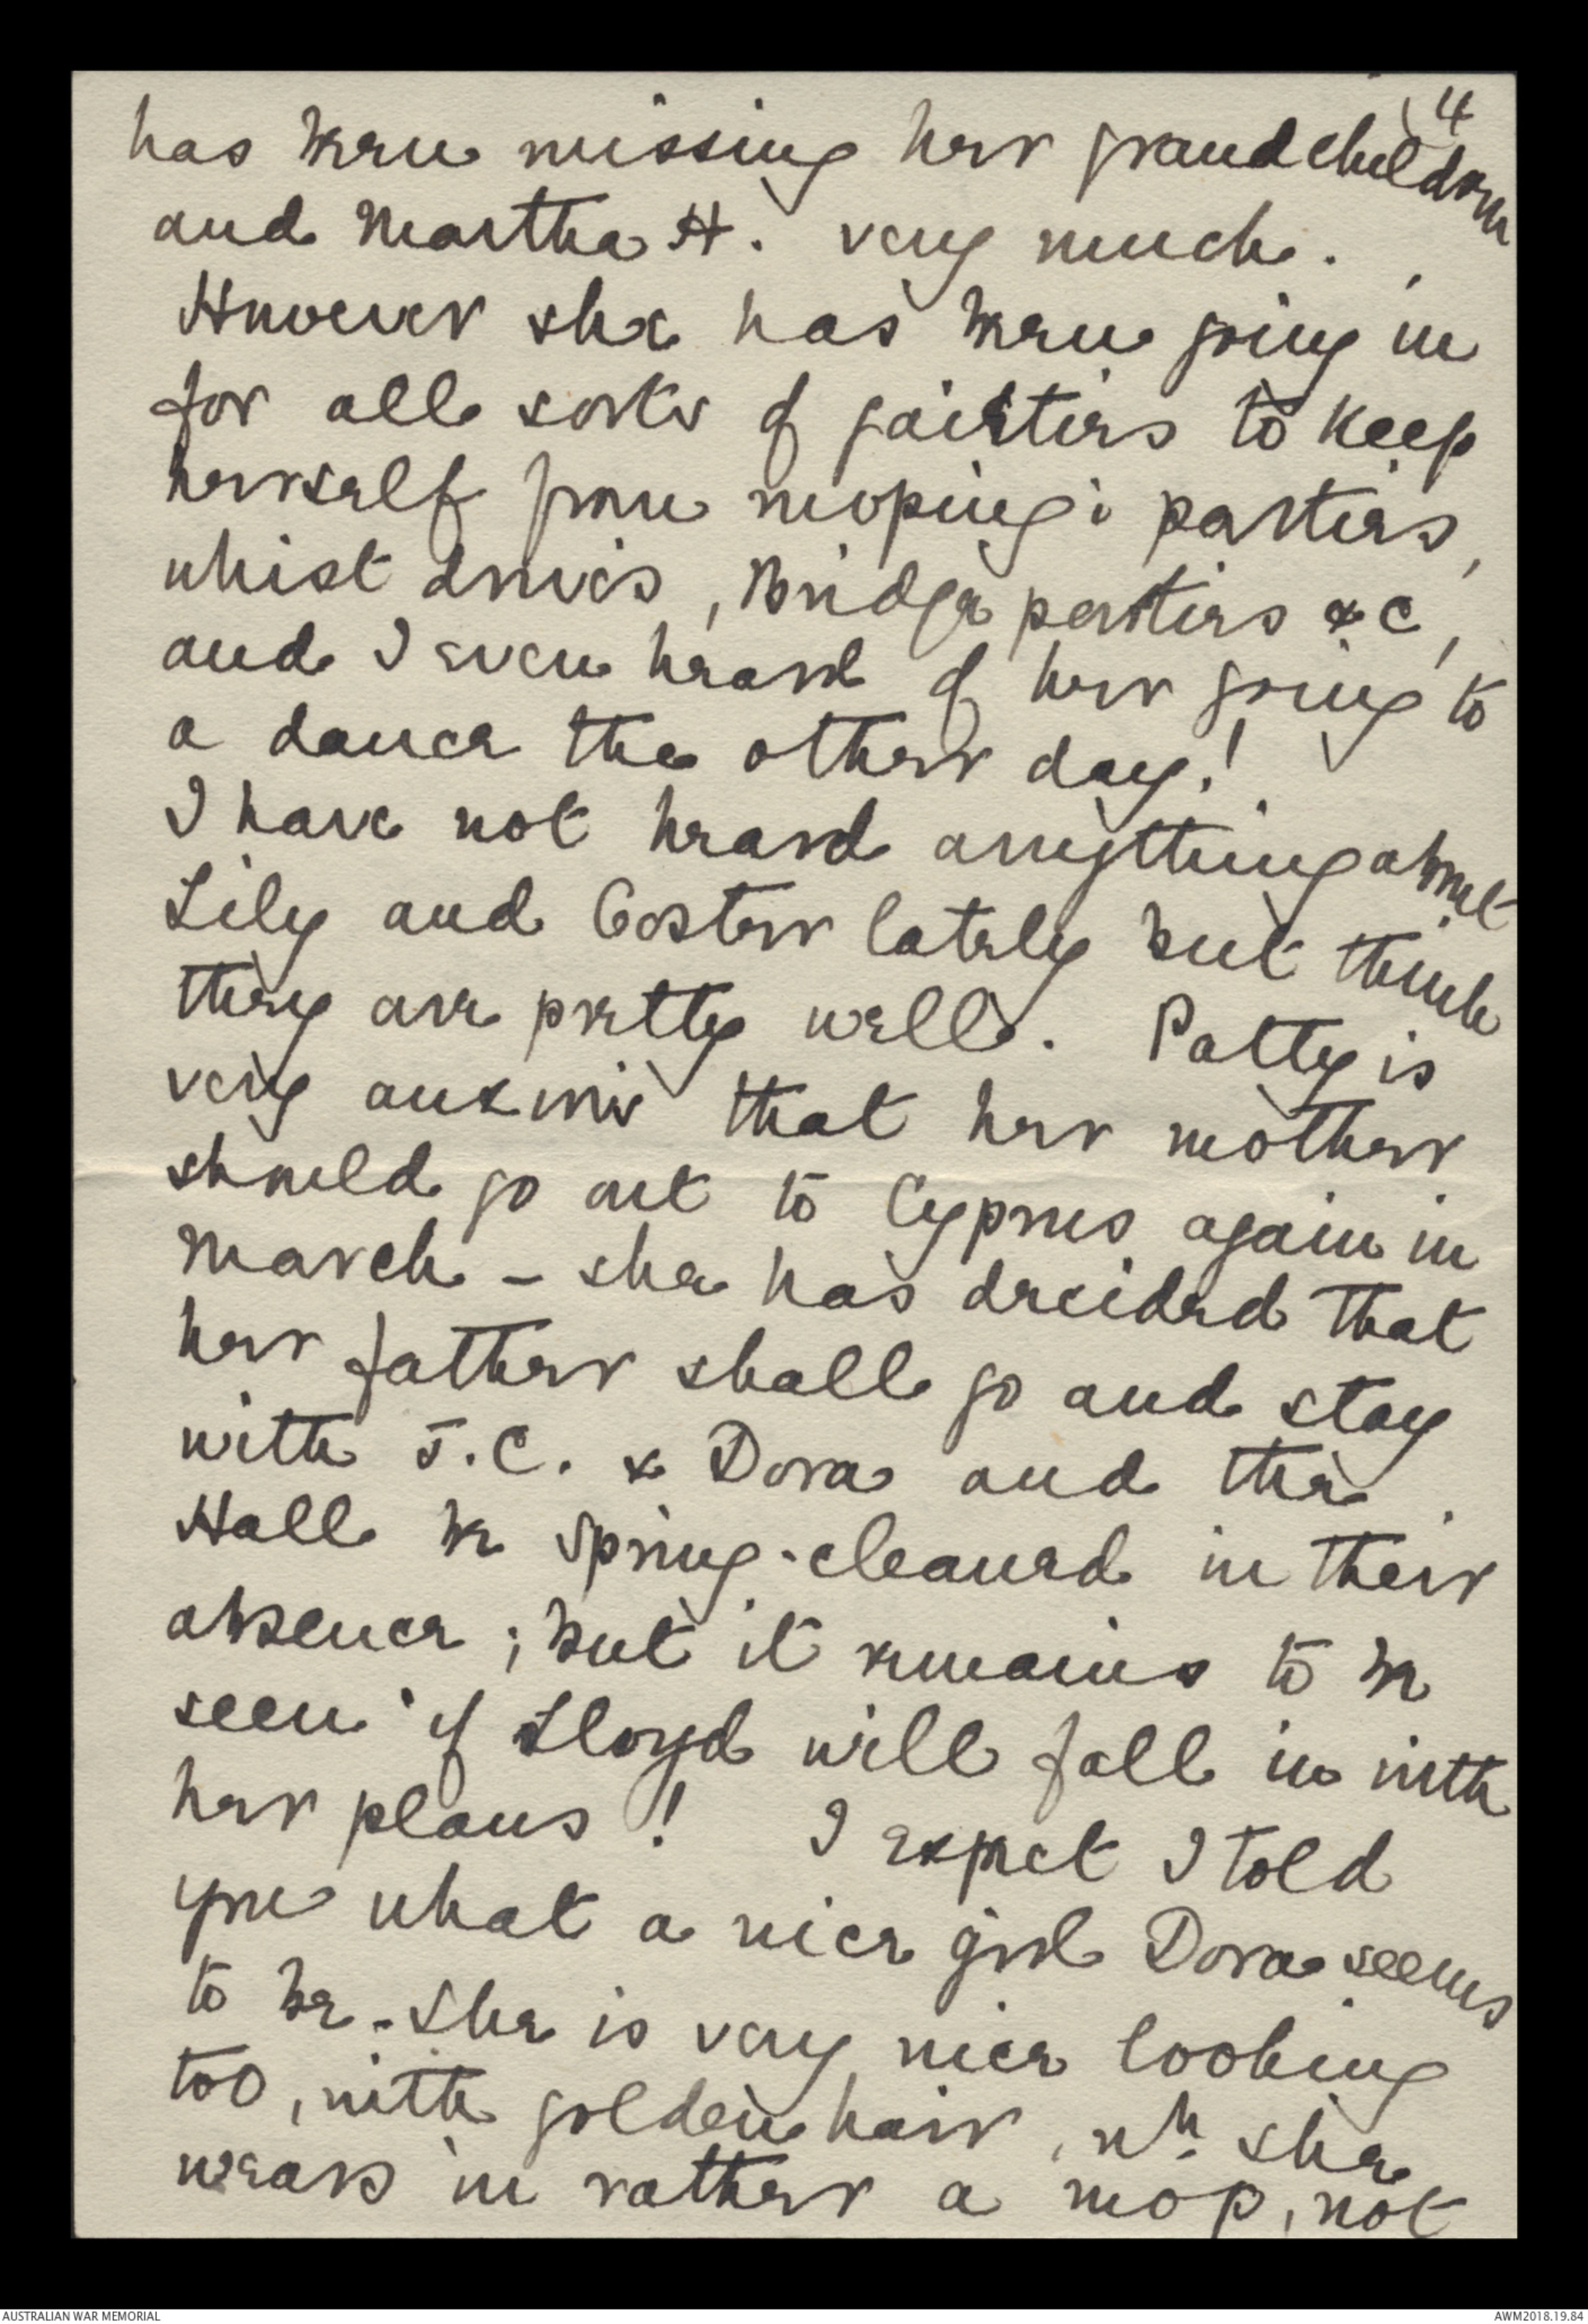 4
has been missing her grandchildren
and Martha H. very much.
However she has been going in
for all sorts of gaieties to keep
herself from moping; parties,
whist drives, Bridge parties &c,
and I even heard of her going to
a dance the other day!
I have not heard anything about
Lily and Coster lately but think
they are pretty well. Patty is
very anxious that her mother
should go out to Cyprus again in
March - she has decided that
her father shall go and stay
with J.C. & Dora and the
Hall be spring-cleaned in their
absence; but it remains to be
seen if Lloyd will fall in with
her plans! I expect I told
you what a nice girl Dora seems
to be - she is very nice looking
too, with golden hair, wh. she
wears in rather a mop, not
AUSTRALIAN WAR MEMORIAL
AWM2018.19.84